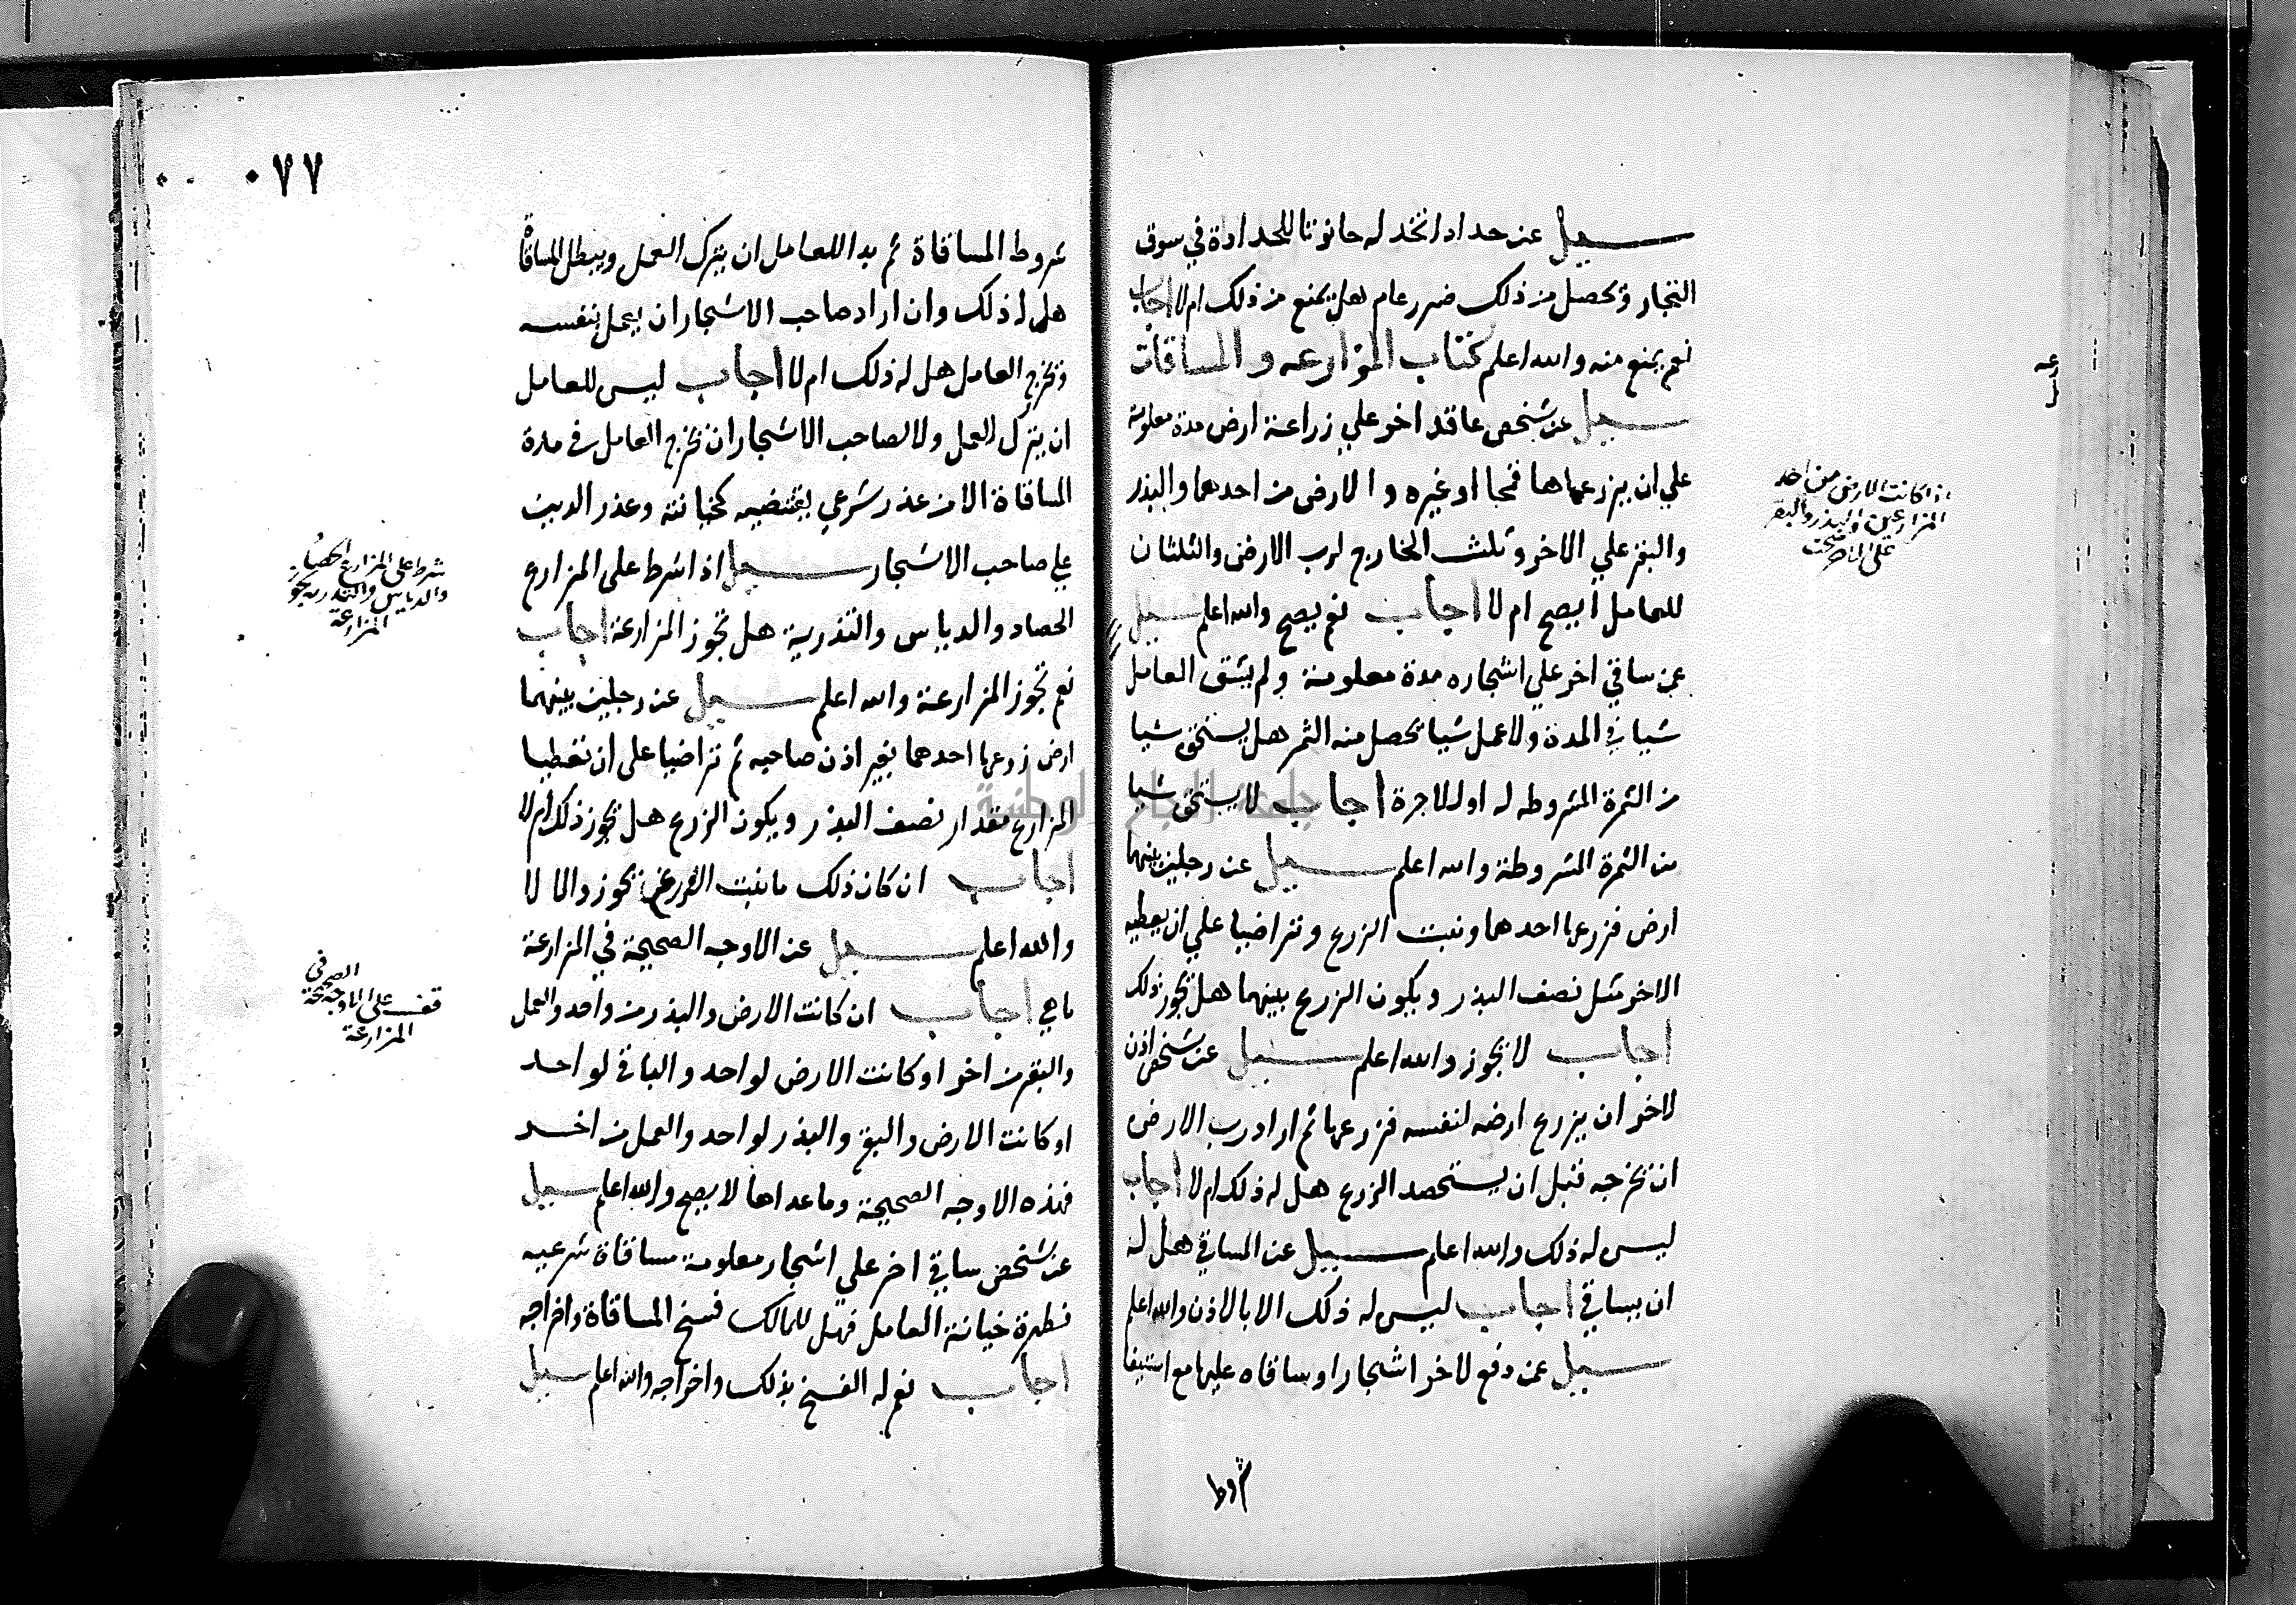 سيل عن حداد اتخذ له حانوتا للحدادة في سوق
التجار ويحصل من ذلك ضرر عام هل يمنع من ذلك ام لا اجاب
نعم يمنع منه والله اعلم كتاب المزارعه والمساقات
سيل عن شخص عاقد اخر علي زراعة ارض مدة معلومة
علي ان يزرعها قمحا او غيره والارض من احدهما والبذر
والبقر علي الاخر وثلث الخارج لرب الارض والثلثان
للعامل ايصح ام لا اجاب نعم يصح والله اعلم سيل
عن ساقي اخر علي اشجاره مدة معلومة ولم يسق العامل
شيا في المدة ولا عمل شيا يحصل منه الثمر هل يستحق شيا
من الثمرة المشروطه له اولا اجرة اجاب لا يستحق شيا
من الثمرة المشروطة والله اعلم سيل عن رجلين بينهما
ارض فزرعها احدهما ونبت الزرع وتراضيا علي ان يعطيه
الاخر مثل نصف البذر ويكون الزرع بينهما هل يجوز ذلك
اجاب لا يجوز والله اعلم سيل عن شخص اذن
لاخر ان يزرع ارضه لنفسه فزرعها ثم اراد رب الارض
ان يخرجه قبل ان يستحصد الزرع هل له ذلك ام لا اجاب
ليس له ذلك والله اعلم سيل عن المساقي هل له
ان يساقي اجاب ليس له ذلك الا بالاذن والله اعلم
سيل عن دفع لاخر اشجارا وساقاه عليها مع استيفا
شروط
اذا كانت الارض من احد
المزارعين والبذر والبقر
على الاخر صحت
٠٧٧
شروط المساقاة ثم بدا للعامل ان يترك العمل ويبطل المساقاة
هل له ذلك وان اراد صاحب الاشجار ان يعمل بنفسه
ويخرج العامل هل له ذلك ام لا اجاب ليس للعامل
ان يترك العمل ولا لصاحب الاشجار ان يخرج العامل في مدة
المساقاة الا من عذر شرعي يقتضيه كخيانته وعذر الدين
علي صاحب الاشجار سيل اذا شرط على المزارع
الحصاد والدياس والتذرية هل تجوز المزارعة اجاب
نعم تجوز المزارعة والله اعلم سيل عن رجلين بينهما
ارض زرعها احدهما بغير اذن صاحبه ثم تراضيا على ان يعطيا
المزارع مقدار نصف البذر ويكون الزرع هل يجوز ذلك ام لا
اجاب ان كان ذلك ما نبت الزرع يجوز والا لا
والله اعلم سيل عن الاوجه الصحيحة في المزارعة
ما هي اجاب ان كانت الارض والبذر من واحد والعمل
والبقر من اخر او كانت الارض لواحد والباقي لواحد
او كانت الارض والبقر والبذر لواحد والعمل من اخر
فهذه الاوجه الصحيحة وما عداها لا يصح والله اعلم سيل
عن شخص ساقي اخر علي اشجار معلومة مساقاة شرعيه
فظهرة خيانة العامل فهل للمالك فسخ المساقاة واخراجه
اجاب نعم له الفسخ بذلك واخراجه والله اعلم سيل
شرط على المزارع الحصاد
والدياس والتذريه تجوز
المزارعة
قف على الاوجه الصحيحة في
المزارعة
جامعة النجاح الوطنية